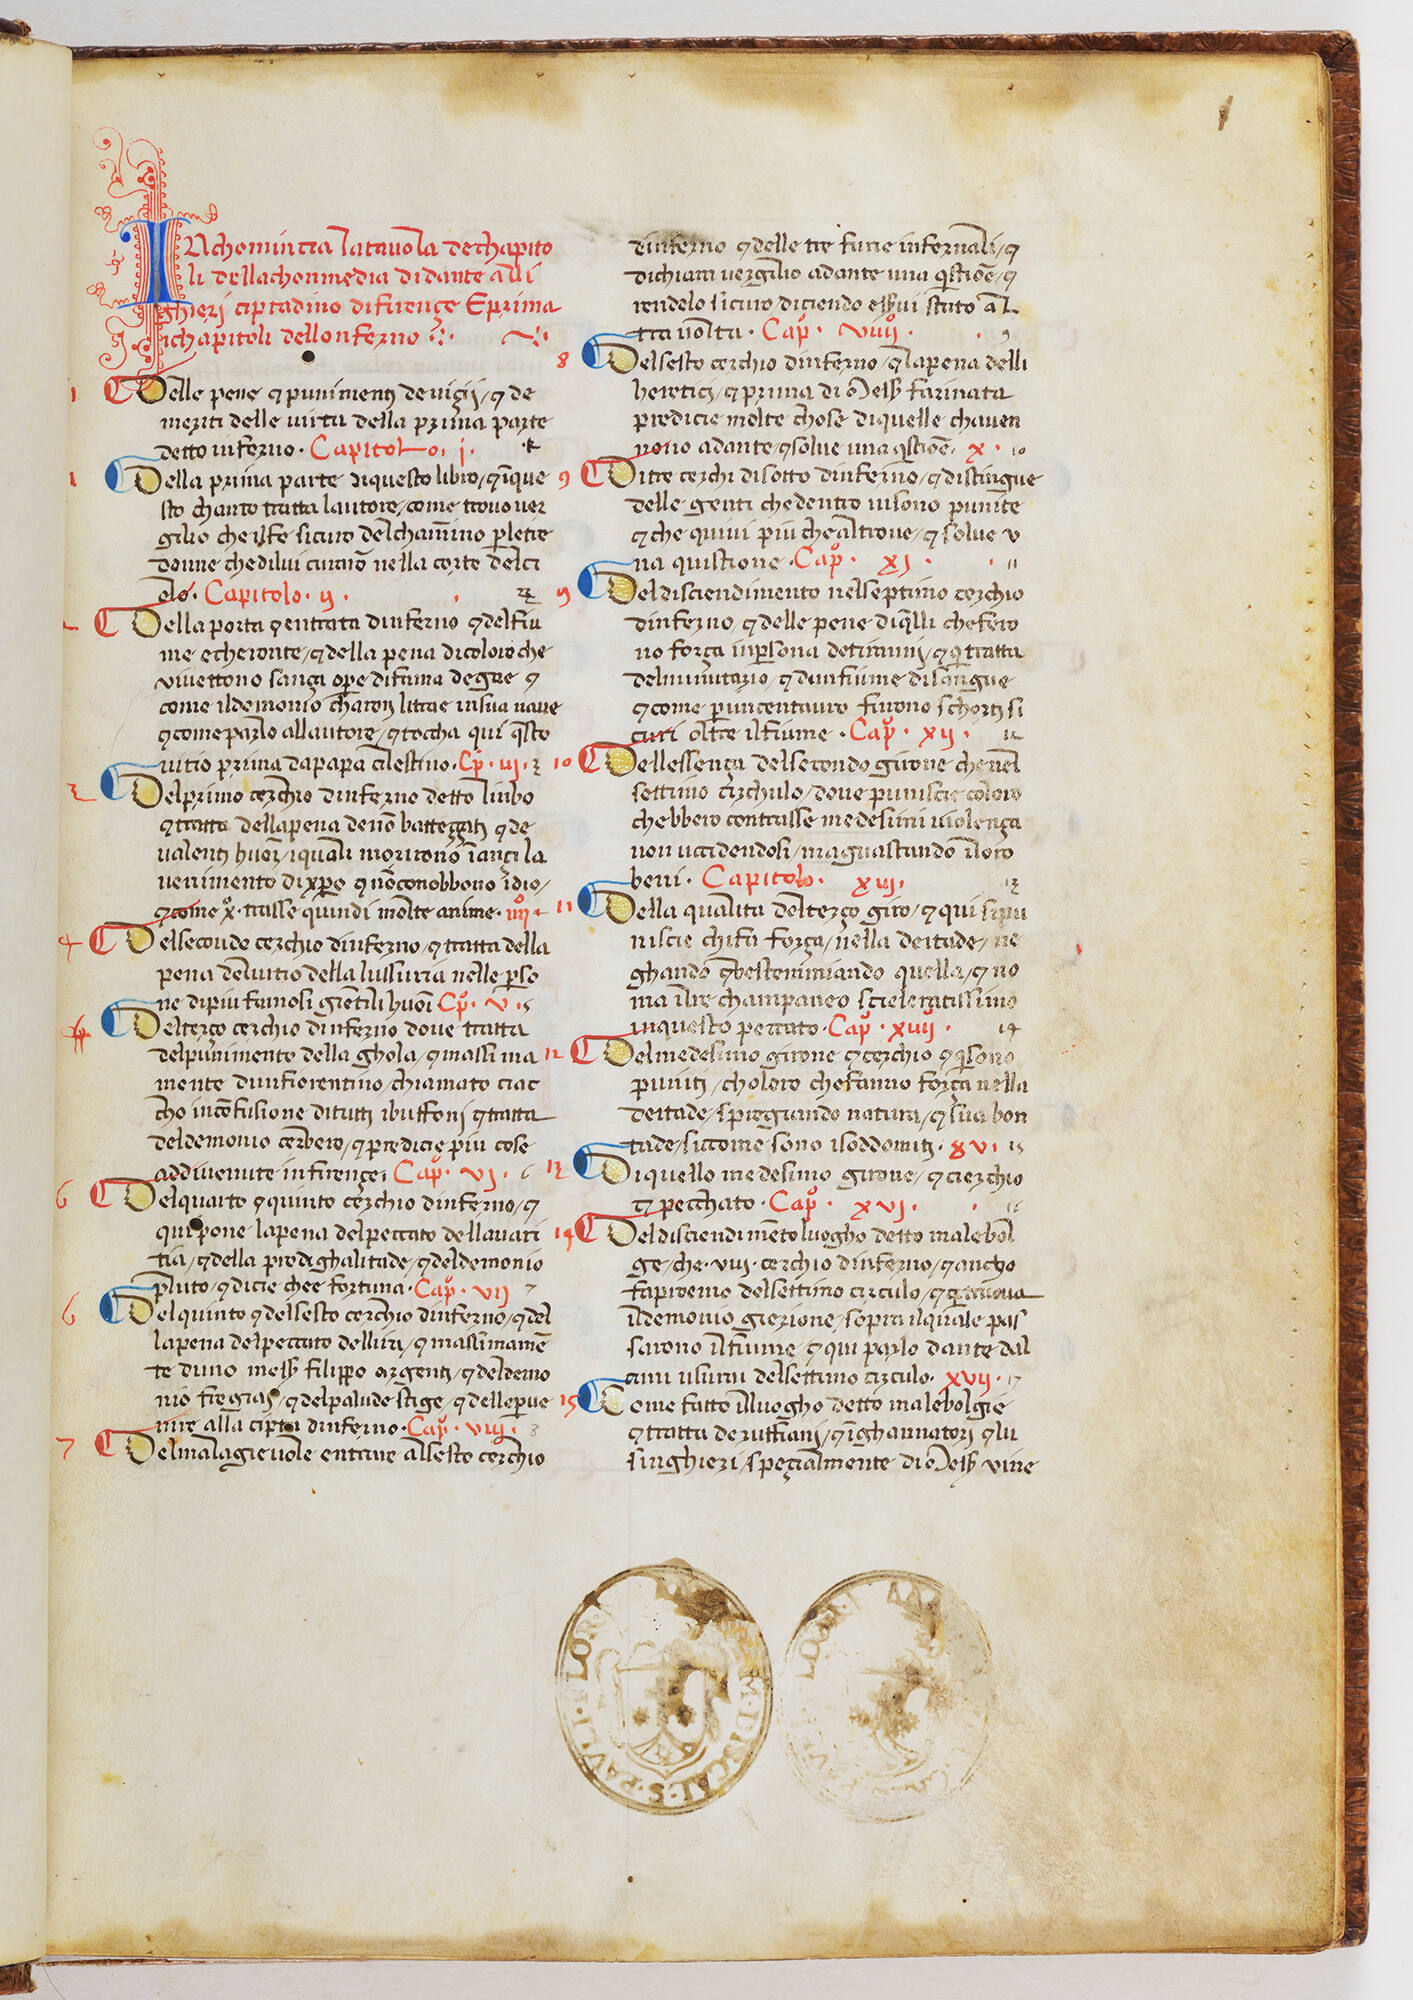 INchomincia latavola dechapito
li dellachommedia didante alli
ghieri ciptadino difirençe Eprima
ichapitoli dellonferno
1 Delle pene ⁊ punimenti deviçij/⁊ de
meriti delle virtu della prima parte
detto inferno · Capitolo · j ·
1 Della prima parte diquesto libro/⁊ īque
sto chanto tratta lautore/come trovo ver
gilio cheilfe sicuro delchāmino perletre
donne chedilui curarō nella corte delci
elo · Capitolo · ij ·
2 Della porta ⁊entrata dinferno ⁊delfiu
me echeronte/⁊della pena dicoloro che
vivettono sança opere difama degne ⁊
come ildemonio charon litrae insua nave
⁊comeparlo allautore/⁊tocha qui q̄sto
vitio prima dapapa cilestino · Cp̄ · iij · 3
3 Delprimo cerchio dinferno detto limbo
⁊tratta dellapena denō batteççati ⁊de
valenti huoī/iquali morirono īançi la
venimento dixp̄o ⁊nōconobbono idio/
⁊come x̄o · trasse quindi molte anime · iiij · 4
4 Delsecondo cerchio dinferno/⁊tratta della
pena delvitio della lussuria nelle perso
ne dipiu famosi gientili huoī Cp̊ · v · 5
Delterço cerchio dinferno dove tratta
delpunimento della ghola/⁊massima
mente dunfiorentino/chiamato ciac
cho inconfusione ditutti ibuffoni ⁊tratta
deldemonio cerbero/⁊predicie piu cose
addivenute infirençe · Cap̊ · vi · 6
6 Delquarto ⁊quinto cerchio dinferno/⁊
qui pone lapena delpeccato dellavari
tia/⁊della prodighalitade/⁊deldemonio
pluto/⁊dicie chee fortuna · Cap̊ · vij 7
6 Delquinto ⁊delsesto cerchio dinferno/⁊del
lapena delpeccato dellira/⁊massimamē
te duno mess̄ filippo argenti/⁊deldemo
nio fregias/⁊delpalude stige/⁊delleperve
nire alla cipta dinferno · Cap̊ · viij · 8
7 Delmalagievole entrare alsesto cerchio
dinferno ⁊delle tre furie infernali/⁊
dichiara vergilio adante una q̄stiōe/⁊
rendelo sicuro diciendo esservi stato al
tra volta · Cap̊ · viiij · 9
8 Delsesto cerchio dinferno/⁊lapena delli
heretici/⁊prima di Mess̄ farinata
predicie molte chose diquelle chaven
nono adante/⁊solve una q̄stiōe · x · 10
9 Ditre cerchi disotto dinferno/⁊distingue
delle genti chedentro visono punite
⁊che quivi piu chealtrove/⁊ solve v
na quistione · Cap̊ · xj · 11
9 Deldisciendimento nelseptimo cerchio
dinferno/⁊delle pene diq̄lli chefero
no força inpersona detiranni/⁊q̄ tratta
delminutauro/⁊dunfiume disangue
⁊come peruncentauro furono schorti si
curi oltre ilfiume · Cap̊ · xij · 12
10 Dellessença delsecondo girone chenel
settimo circhulo/dove puniscie coloro
chebbero contrasse medesimi violença
non uccidendosi/maguastando iloro
beni · Capitolo · xiij · 13
11 Della qualita delterço giro/⁊qui sipu
niscie chifa força/nella deitade/ne
ghando ⁊bestemmiando quella/⁊no
ma ilre champaneo scieleratissimo
inquesto peccato · Cap̊ · xiiij · 14
12 Delmedesimo girone ⁊cerchio ⁊q̄sono
puniti/choloro chefanno força nella
deitade/spregiando natura/⁊sua bon
tade/sicome sono isoddomiti · xvi 15
13 Diquello medesimo girone/⁊cierchio
⁊ pecchato · Cap̊ · xvj · 16
14 Deldisciendimēto luogho detto malebol
ge/che · viij · cerchio dinferno/⁊ancho
faproemio delsettimo circulo/⁊qui truova
ildemonio gierione/sopra ilquale pas
sarono ilfiume/⁊qui parlo dante dal
cuni usurai delsettimo circulo · xvij · 17
15 Come fatto illuogho detto malebolgie
⁊tratta deruffiani/⁊īghannatori ⁊lu
singhieri/spetialmente di Mess̄ vine